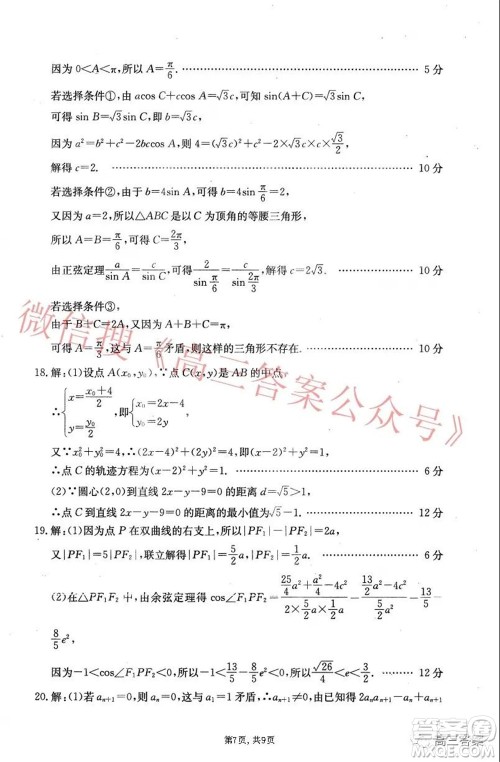 因为 0<A<π,所以 A=π/6. …………… 5 分
若选择条件①,由 acos C+ccos A=√3c,可知 sin(A+C)=√3sin C,
可得 sin B=√3sin C,即 b=√3c,
因为 a²=b²+c²-2bccos A,则 4=(√3c)²+c²-2×√3c×c×√3/2,
解得 c=2. …………… 10 分
若选择条件②,由于 b=4sin A,可得 b=4sin π/6=2,
又因为 a=2,所以△ABC 是以 C 为顶角的等腰三角形,
所以 A=B=π/6,可得 C=2π/3,
由正弦定理 a/sin A=c/sin C,可得 2/sin π/6=c/sin 2π/3,解得 c=2√3. …………… 10 分
若选择条件③,
由于 B+C=2A,又因为 A+B+C=π,
可得 A=π/3,这与 A=π/6矛盾,则这样的三角形不存在. …………… 10 分
18.解:(1)设点 A(x₀,y₀),∵点 C(x,y)是 AB 的中点,
∴{x=(x₀+4)/2, y=y₀/2, 即{x₀=2x-4, y₀=2y,
又∵x₀²+y₀²=4,∴(2x-4)²+(2y)²=4,
∴点 C 的轨迹方程为(x-2)²+y²=1. …………… 6 分
(2)∵圆心(2,0)到直线 2x-y-9=0 的距离 d=√5>1,
∴点 C 到直线 2x-y-9=0 的距离的最小值为√5-1. …………… 12 分
19.解:(1)因为点 P 在双曲线的右支上,所以|PF₁|-|PF₂|=2a,
又|PF₁|=5|PF₂|,联立解得|PF₁|=5/2a,|PF₂|=1/2a. …………… 6 分
(2)在△PF₁F₂ 中,由余弦定理得 cos∠F₁PF₂=(25/4a²+a²/4-4c²)/(2×5/2a×1/2a)=(13/2a²-4c²)/(5/2a²)=13/5-
8/5e²,
因为-1<cos∠F₁PF₂<0,所以-1<13/5-8/5e²<0,所以√26/4<e<3/2. …………… 12 分
20.解:(1)若 aₙ₊₁=0,则 aₙ=0,这与 a₁=1 矛盾,∴aₙ₊₁≠0,由已知得 2aₙaₙ₊₁-aₙ+
第7页,共9页
微信搜《高三答案公众号》
高三答案